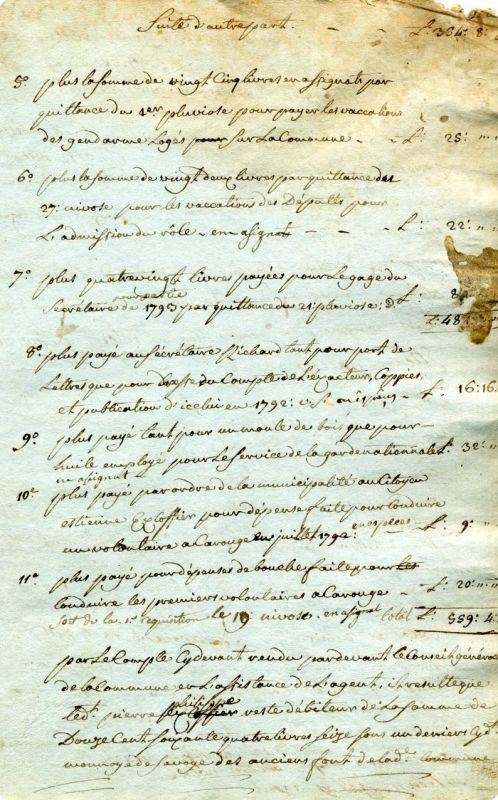 Suite d'autrepart. L: 334: 8:
5° plus la somme de vingt Cinq livres en assignats par
quittance du 1er pluviose pour payer les vaccations
des gendarme Logés pour sur La Commune - L: 25: " "
6° plus la somme de vingt deux livres par quittance des
27: nivose pour les vaccations des Députés pour
L'admission du rôle - en asignat - - - L: 22: " "
7° plus quatrevingt livres payée pour Le gage du
Secrétaire de 1793 par quittance du 21: pluviose; L:
L: 48
8° plus payé au Sécrétaire Richard tant pour port de
Lettres que pour du Compte de L'exacteur, Coppies
et publication d'icelui en 1792: L: 16:16.
9° plus payé tant pour un moule de bois que pour
huile employé pour Le Service de la garde nationnale L: 32: "
en asignat
10° plus payé par ordre de la municipalité au Citoyen
estienne Excoffier pour dépense faite pour Conduire
un volontaire a Carouge en juillet 1792: en espèces L: 9: "
11° plus payé pour dépenses de bouche faite pour les
Conduire les premiers volontaires a Carouge - L: 20: " "
de la 1re requisition le 19 nivose. en asignat total L: 559: 4
par Le Compte Cydevant rendu pardevant le Conseil général
de la Commune en L'assistance de L'agent, il resulte que
led.t pierre philippe Excoffier reste débiteur de La Somme de
Douze Cent soixante quatre livres seize sous un deniers
monnoye de Savoye des anciens font de lad.e Commune